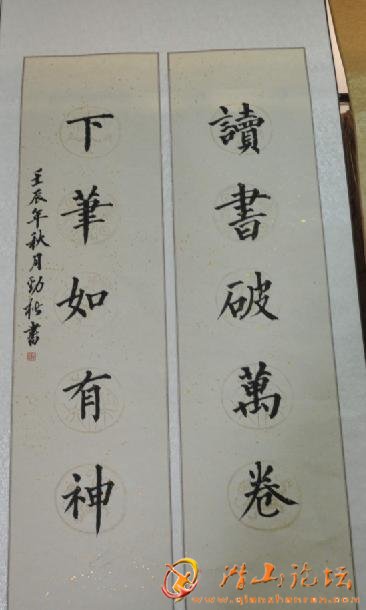 讀書破萬卷
下筆如有神
壬辰年秋月勁松書
潜山论坛
www.qianshanren.com